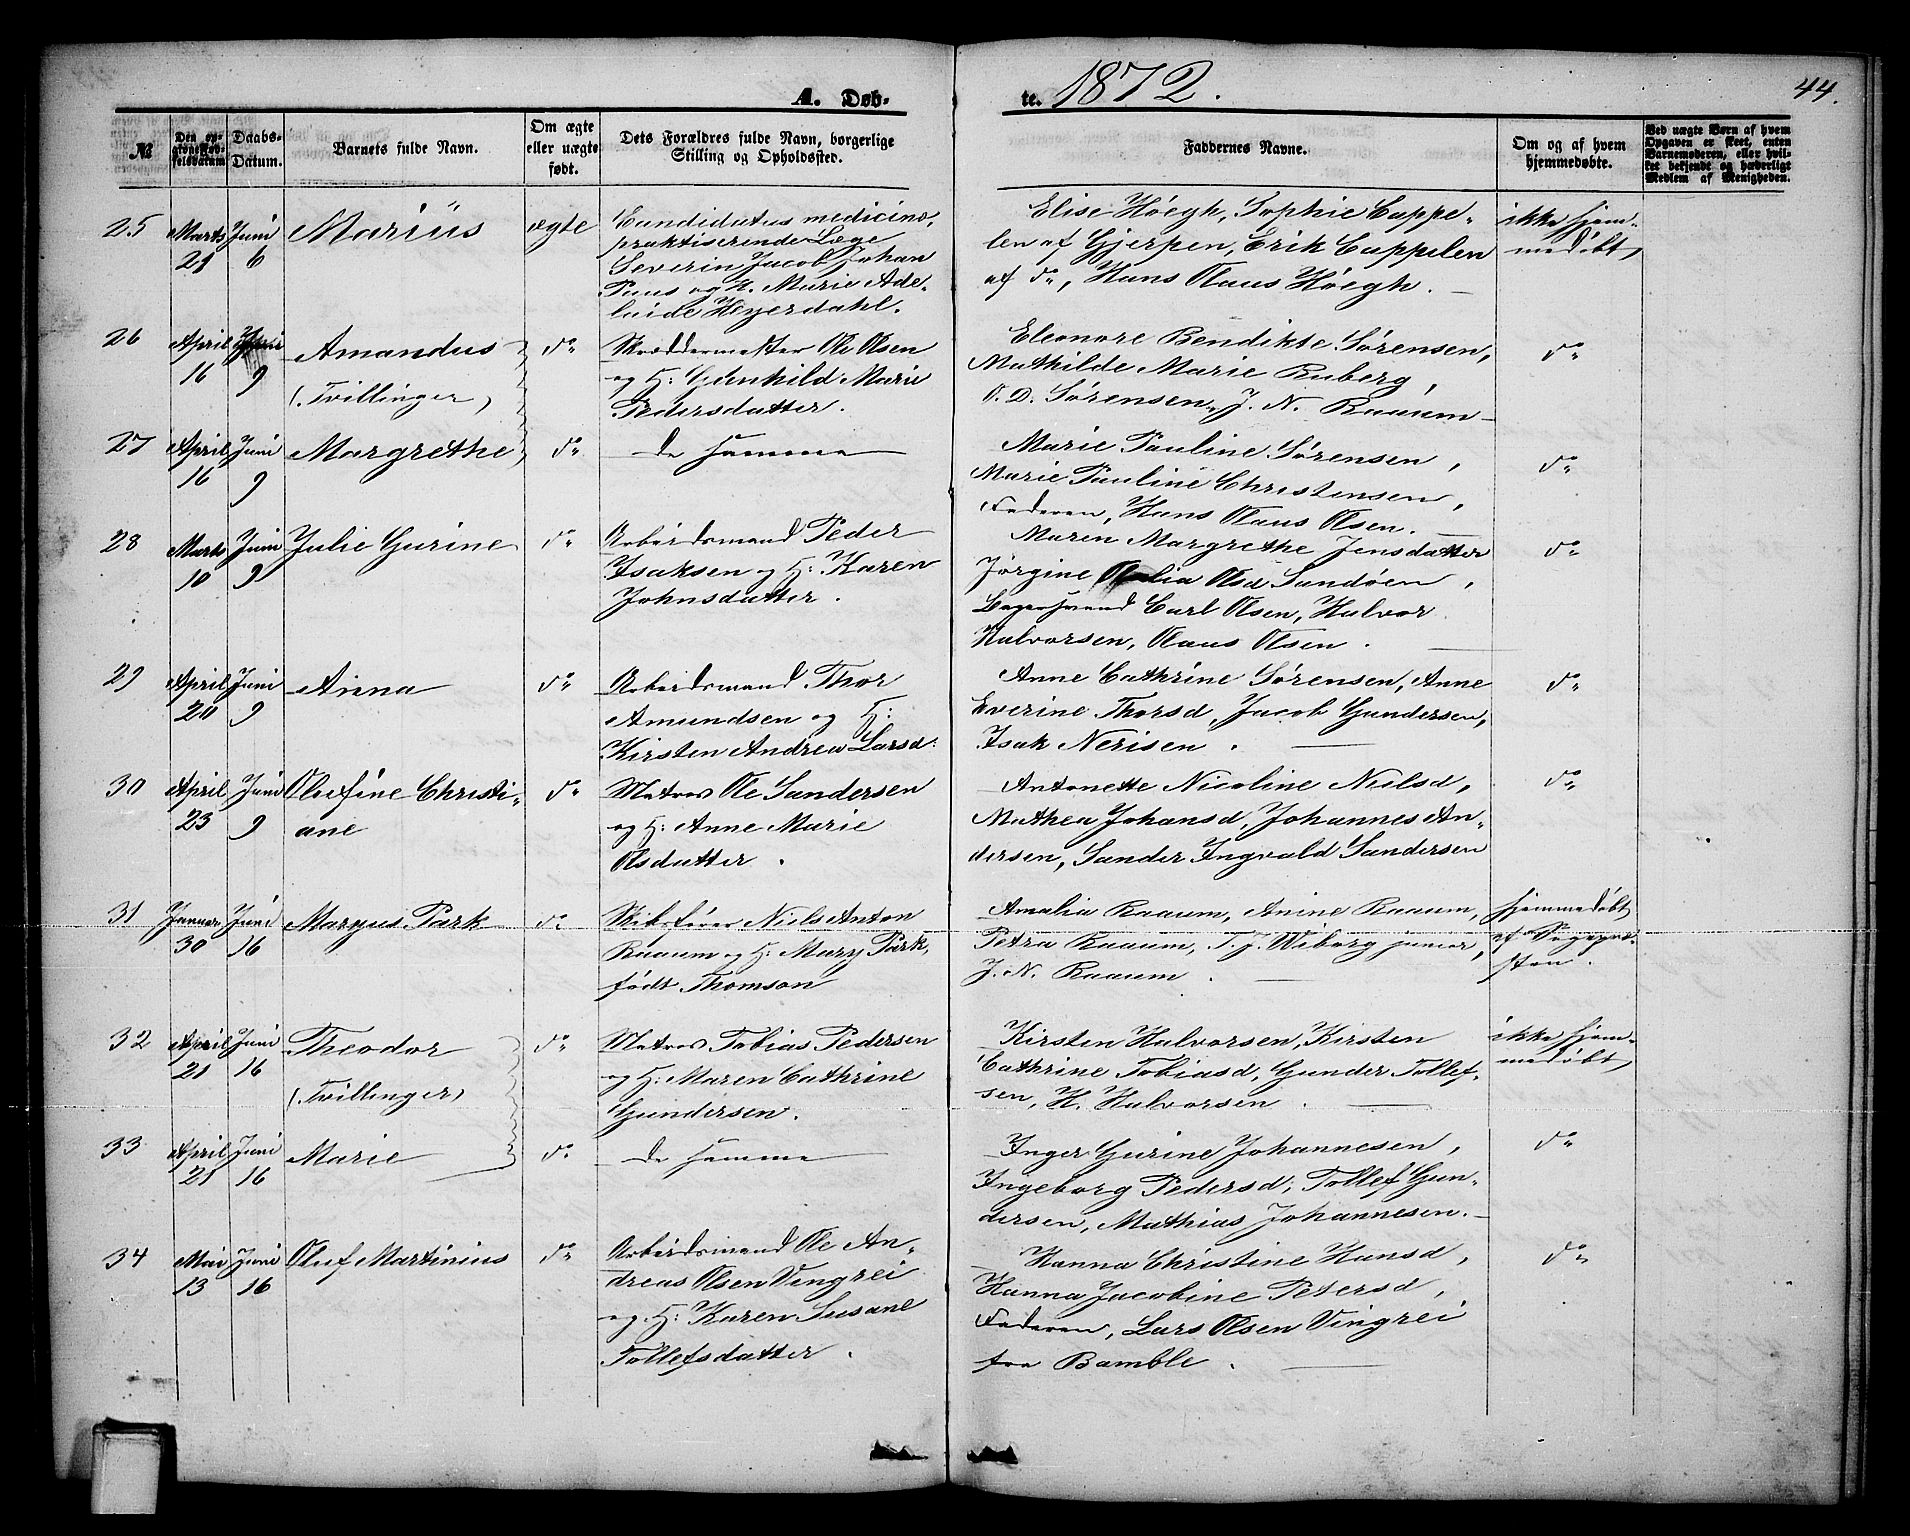 A. Døb- te. 1872. 44.
№
Daabs-Datum.
Barnets fulde Navn.
Om ægte eller uægte født.
Dets Forældres fulde Navn, borgerlige Stilling og Opholdsted.
Faddernes Navne.
Om og af hvem hjemmedøbte.
Ved uægte Børn af hvem Opgaven er skeet, enten Barnemoderen, eller hvilket bekjendt og hæderligt Medlem af Menigheden.
25 Marts 21 Juni 6
Marius
ægte
Candidatus medicinæ,
praktiserende Læge
Severin Jacob Johan
Paus og H. Marie Ade-
laide Heyerdahl.
Elise Høegh, Sophie Cappe-
len af Gjerpen, Erik Cappelen
af do, Hans Claus Høegh.
ikke hjem-
medøbt,
26 April 16 9
Amandus
(Tvillinger)
do
Skræddermester Ole Olsen
og H: Gunhild Marie
Pedersdatter.
Eleonore Bendikte Sørensen,
Mathilde Marie Ruberg,
O. D. Sørensen, J. N. Raaum
do
27 April 16 Juni 9
Margrethe
do
de samme
Marie Pauline Sørensen,
Marie Pauline Christensen,
Faderen, Hans Claus Olsen.
do
28 Marts 10 Juni 9
Julie Gurine
do
Arbeidsmand Peder
Isaksen og H: Karen
Johnsdatter.
Maren Margrethe Jensdatter
Jørgine Olsd Sandøen,
Carl Olsen, Halvor
Halvorsen, Claus Olsen.
do
29 April 20 Juni 9
Anna
do
Arbeidsmand Thor
Amundsen og H:
Kirsten Andrea Larsd:
Anne Cathrine Sørensen, Anne
Everine Thorsd, Jacob Gundersen,
Isak Nerisen.
do
30 April 23 Juni 9
Olefine Christi-
ane
do
Matros Ole Sandersen
og H: Anne Marie
Olsdatter.
Antonette Nicoline Nielsd,
Mathea Johansd, Johannes An-
dersen, Sander Ingvald Sandersen
do
31 Januar 30 Juni 16
Margus Park
do
Skibsfører Niels Anton
Raaum og H: Mary Park,
født Thomson
Amalia Raaum, Anine Raaum,
Petra Raaum, T. J. Wiborg junior,
J. N. Raaum.
hjemmedøbt
af Sognepræ-
sten.
32 April 21 Juni 16
Theodor
(Tvillinger)
do
Matros Tobias Pedersen
og H: Maren Cathrine
Gundersen.
Kirsten Halvorsen, Kirsten
Cathrine Tobiasd, Gunder Tollef-
sen, H. Halvorsen.
ikke hjem-
medøbt,
33 April 21 Juni 16
Marie
do
de samme
Inger Gurine Johannesen,
Ingeborg Pedersd, Tollef Gun-
dersen, Mathias Johannesen.
do
34 Mai 13 Juni 16
Oluf Martinius
do
Arbeidsmand Ole An-
dreas Olsen Vingrei
og H: Karen Susane
Tollefsdatter.
Hanna Christine Hansd,
Hanna Jacobine Petersd,
Faderen, Lars Olsen Vingrei
fra Bamble.
do